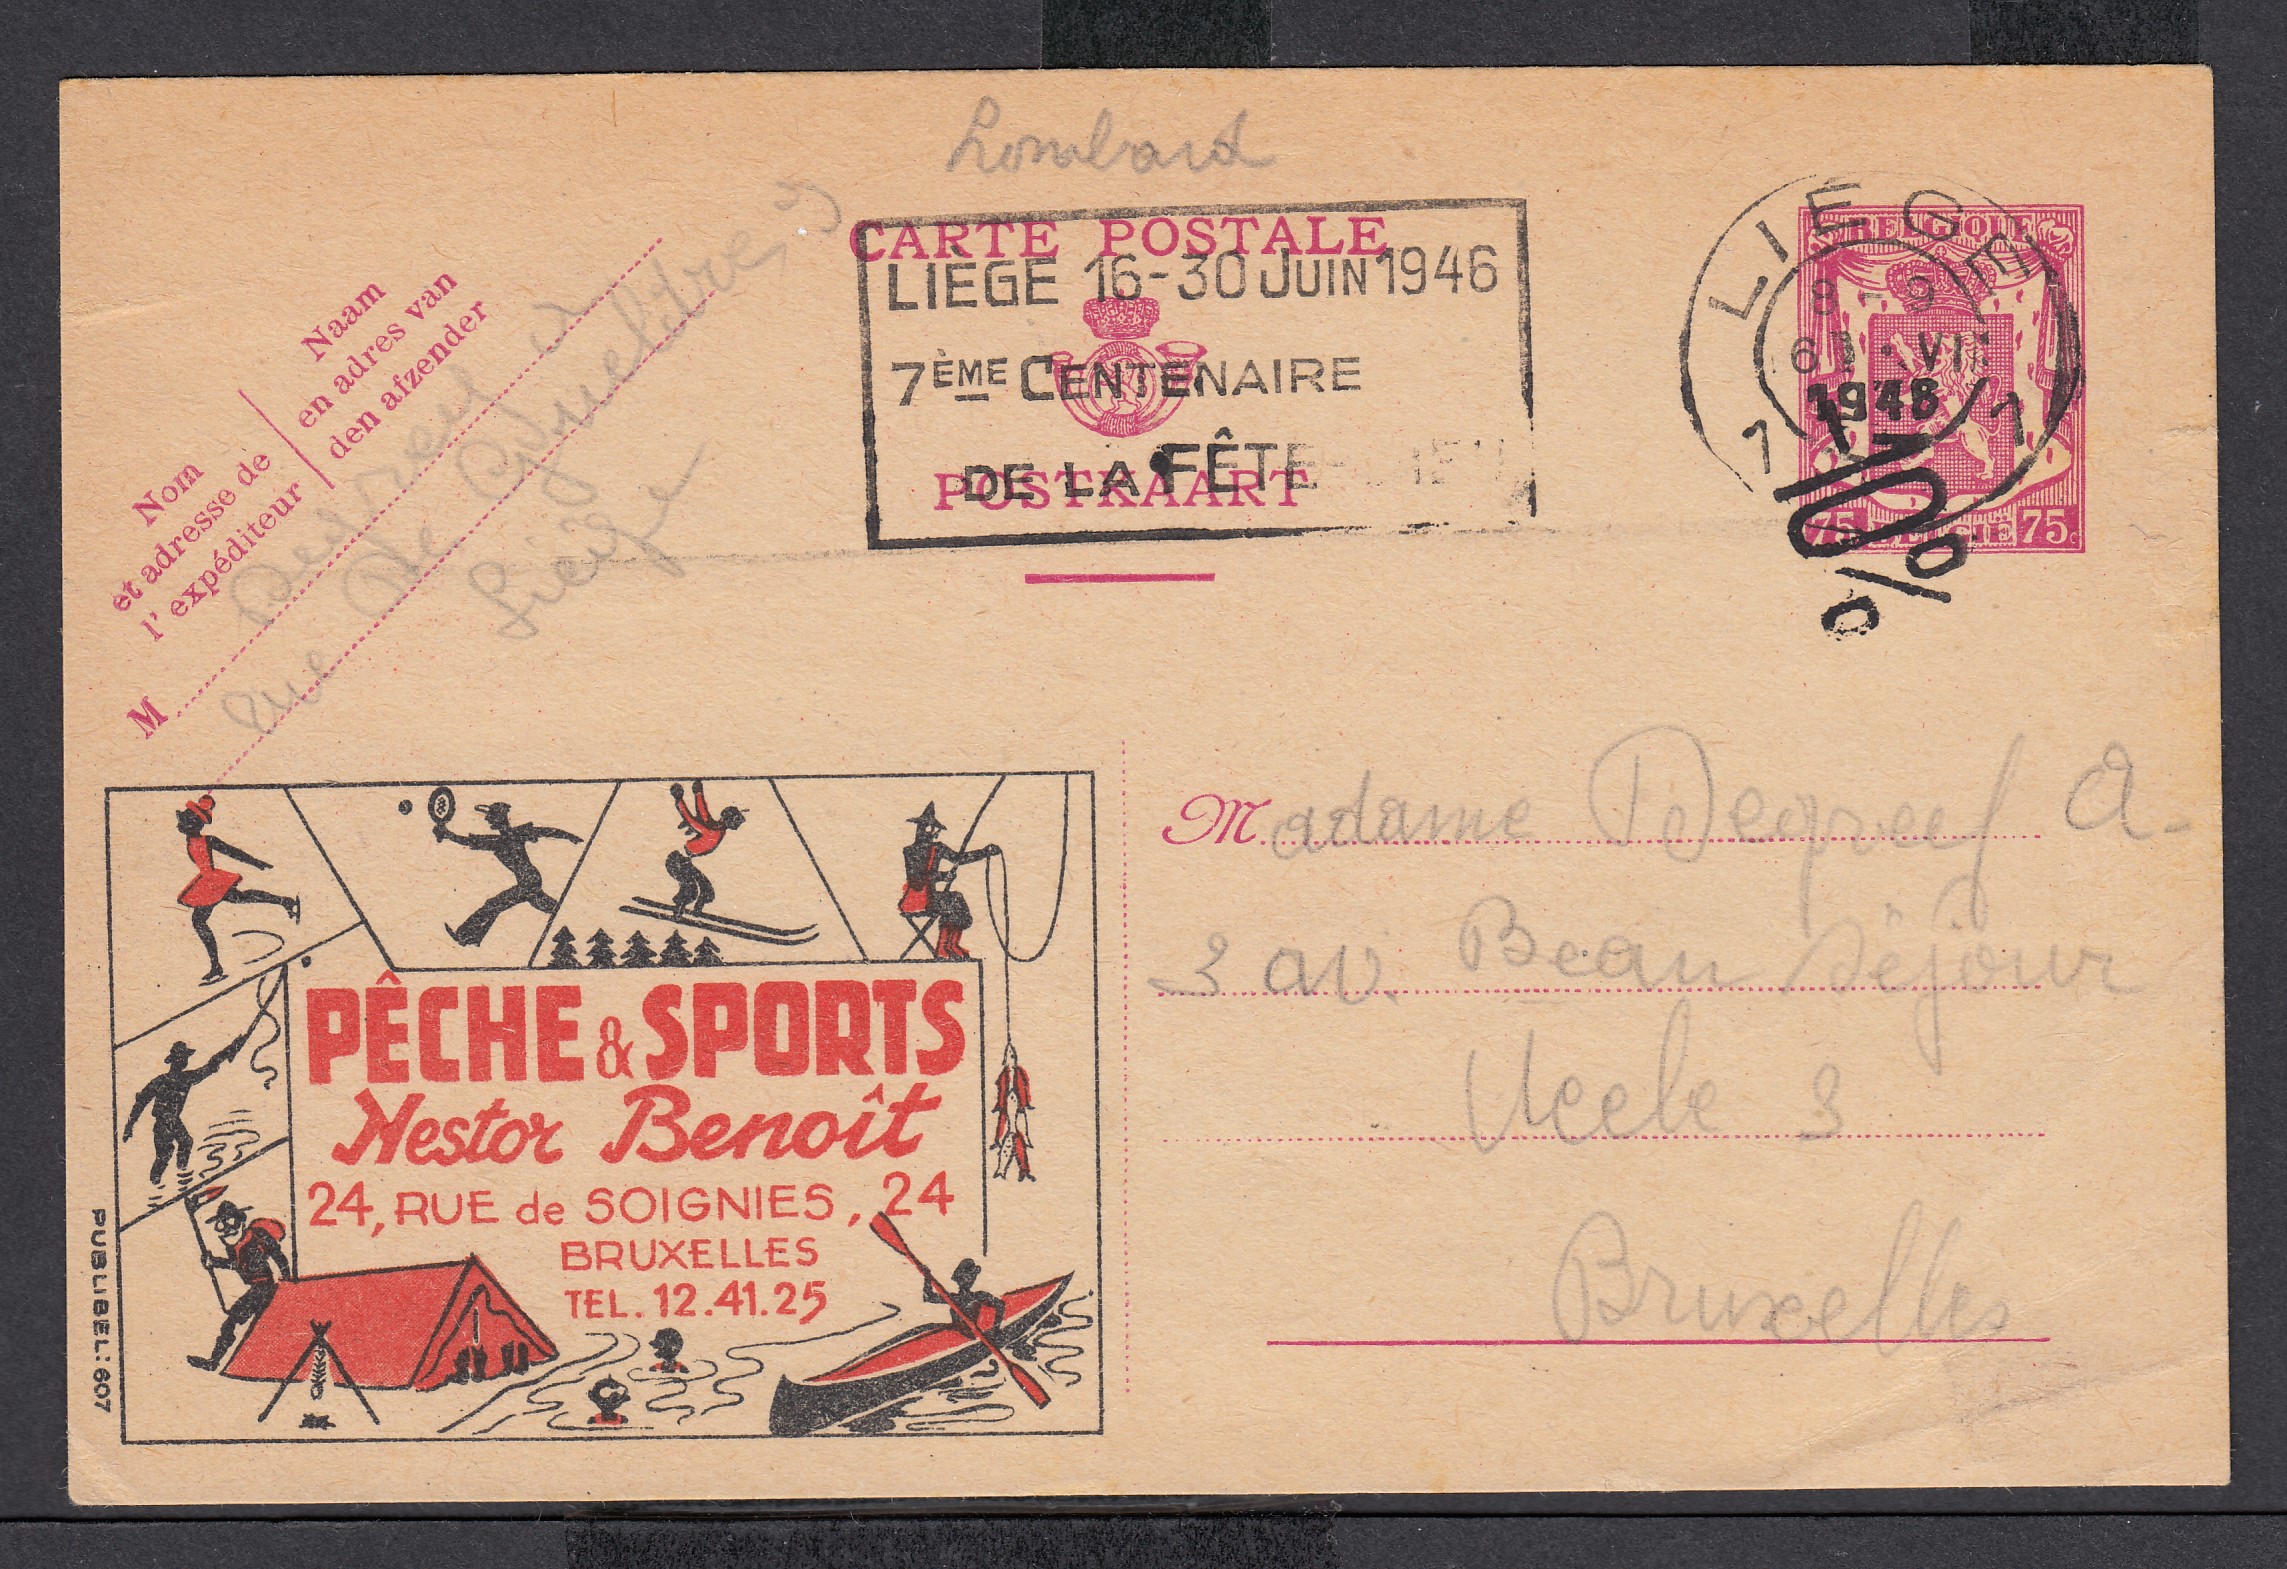 Lombard
CARTE POSTALE
LIÈGE 16-30 JUIN 1946
7ÈME CENTENAIRE
DE LA FÊTE-DIEU
POSTKAART
LIEGE
8-9
VI
1946
1 1
-10%
BELGIQUE
75 BELGIË 75c
Naam
en adres van
den afzender
Nom
et adresse de
l'expéditeur
M
rue de Gueldre, 3
Liège
Madame Degreef A-
3 av. Beau Séjour
Uccle 3
Bruxelles
PÊCHE & SPORTS
Nestor Benoît
24, RUE de SOIGNIES, 24
BRUXELLES
TEL. 12.41.25
PUBLIBEL: 607